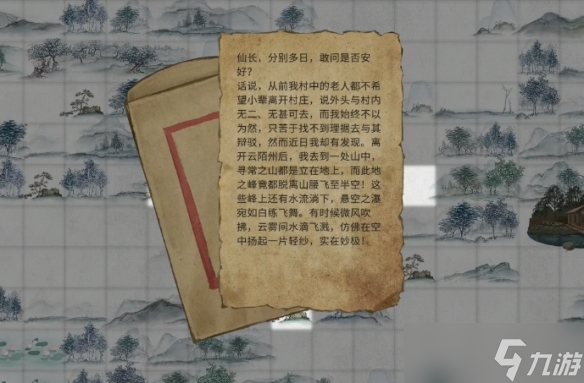 仙长，分别多日，敢问是否安
好？
话说，从前我村中的老人都不希
望小辈离开村庄，说外头与村内
无二、无甚可去，而我始终不以
为然，只苦于找不到理据去与其
辩驳，然而近日我却有发现。离
开云陌州后，我去到一处山中，
寻常之山都是立在地上，而此地
之峰竟都脱离山腰飞至半空！这
些峰上还有水流淌下，悬空之瀑
宛如白练飞舞。有时候微风吹
拂，云雾间水滴飞溅，仿佛在空
中扬起一片轻纱，实在妙极！
九游